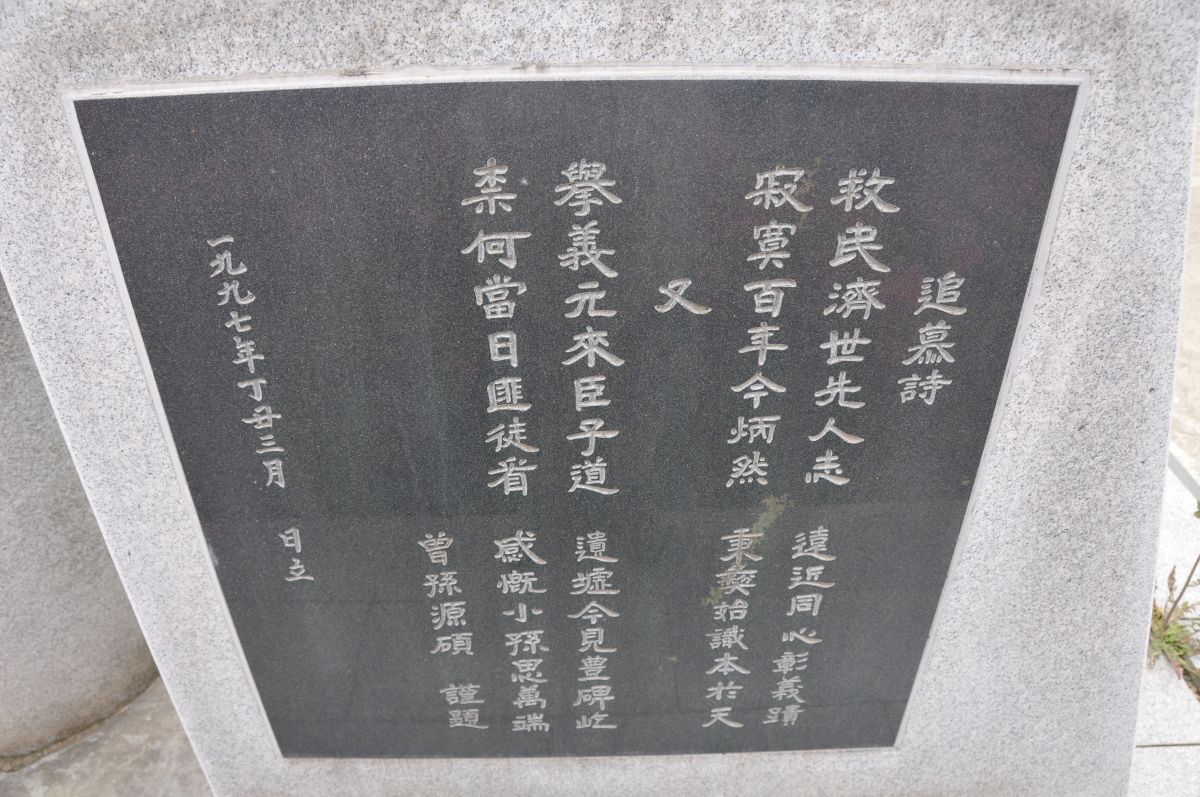 追慕詩
救民濟世先人志 遠近同心彰義蹟
寂寞百年今炳然 秉彛始識本於天
又
擧義元來臣子道 遺墟今見豊碑屹
柰何當日匪徒看 感慨小孫思萬端
曾孫源碩 謹題
一九九七年丁丑三月 日立